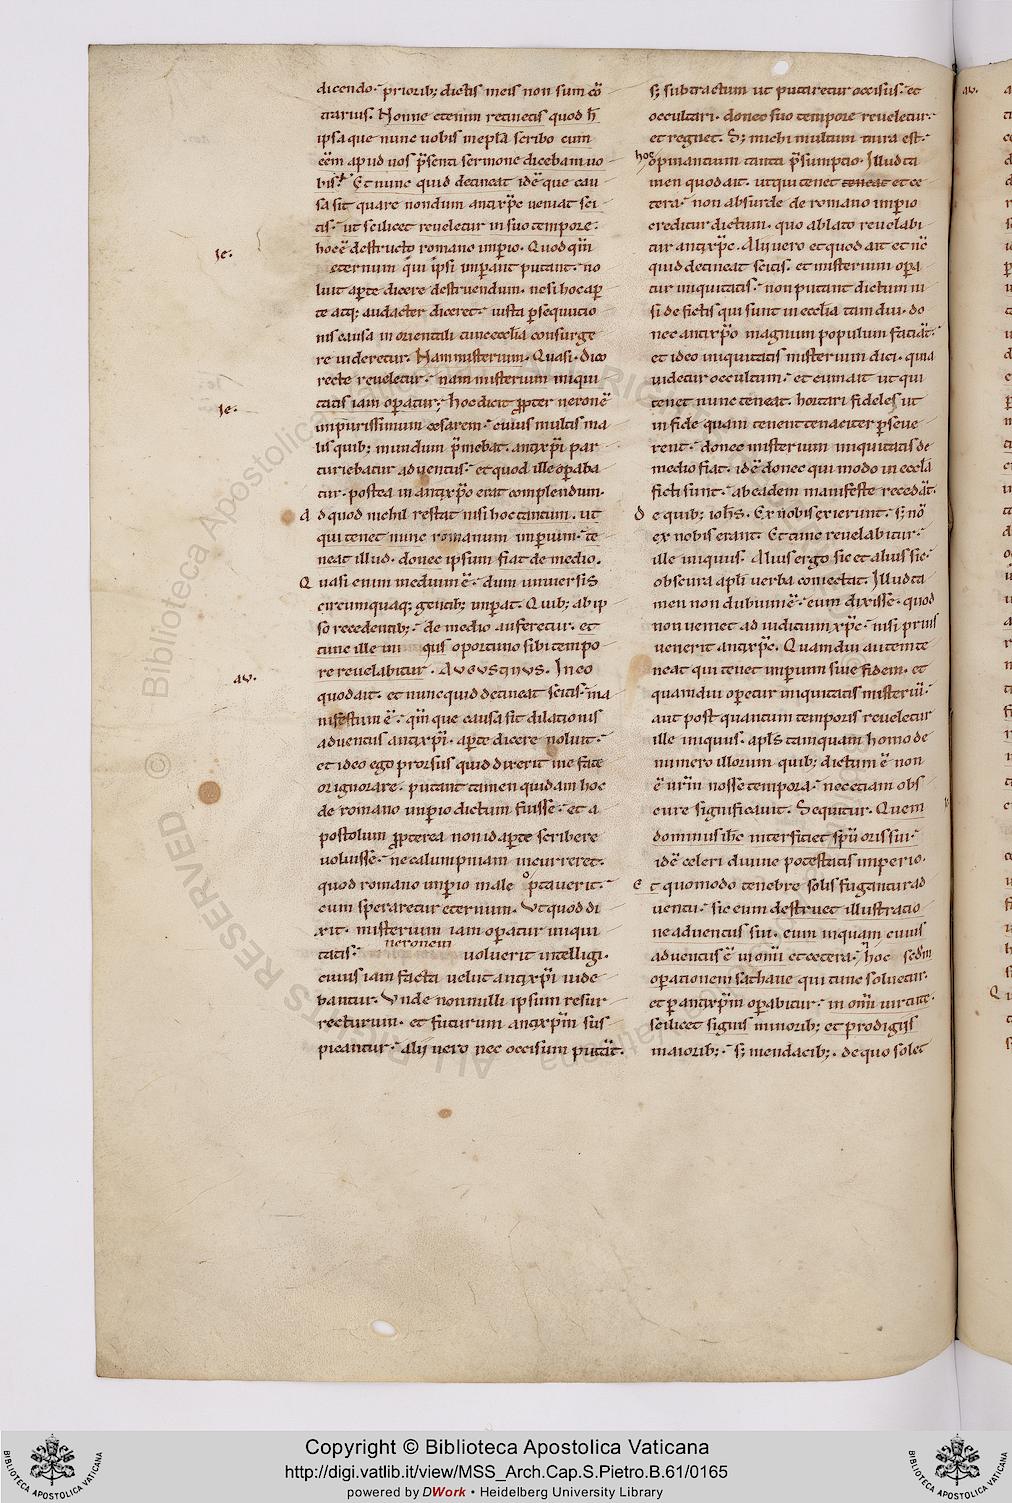 dicendo. priorib; dictis meis non sum cō
trarius. Nonne etenim retinetis quod h̄
ipsa que nunc uobis mepł̄a scribo cum
eēm apud uos p̄senti sermone dicebam uo
bis? Et nunc quid detineat idē que cau
sa sit quare nondum antixp̄c ueniat sci
tis. ut scilicet reueletur in suo tempore.
hoc ē destructo romano imp̱io. Quod qm̄
eternum qui ipsi imp̱ant putant. no
luit ap̱te dicere destruendum. nesi hoc ap̱
te atq; audacter diceret. iusta p̱sequutio
nis causa in orientali tunc ecclīa consurge
re uideretur. Nam misterium. Quasi. dico
recte reueletur. nam misterium iniqui
tatis iam op̱atur; hoc dicit p̱pter neronē
impurissimum cesarem. cuius multis ma
lis quib; mundum p̄mebat. antixp̄i par
turiebatur aduentus. et quod ille op̱aba
tur. postea in antixp̄o erat complendum.
Ad quod nichil restat nisi hoc tantum. ut
qui tenet nunc romanum imp̱ium. te
neat illud. donec ipsum fiat de medio.
Quasi enim medium ē. dum uniuersis
circumquaq; gentib; imp̱at. Quib; ab ip
so recedentib;. de medio auferetur. et
tunc ille ini quis oportuno sibi tempo
re reuelabitur. AVGVSTINVS. In eo
quod ait. et nunc quid detineat scitis. ma
nifestum ē. qm̄ que causa sit dilationis
aduentus antixp̄i. ap̱te dicere noluit.
et ideo ego prorsus quid dixerit me fate
or ignorare. putant tamen quidam hoc
de romano imp̱io dictum fuisse. et a
postolum p̱pterea non id ap̱te scribere
uoluissē. ne calumpniam incurreret.
quod romano imp̱io male optauerit.
cum speraretur eternum. Ut quod di
xit. misterium iam op̱atur iniqui
tatis. neronem uoluerit intelligi.
cuius iam facta uelut antixp̄i uide
bantur. Vnde nonnulli ipsum resur
recturum. et futurum antixp̄m sus
picantur. alij uero nec occisum putāt.
s; subtractum ut putaretur occisus. et
occultari. donec suo tempore reueletur.
et regnet. S; michi multum mira est.
hoc opinantium tanta p̄sumptio. Illud ta
men quod ait. ut qui tenet teneat et ce
tera. non absurde de romano imp̱io
creditur dictum. quo ablato reuelabi
tur antixp̄c. Alij uero et quod ait et nē
quid detineat scitis. et misterium op̱a
tur iniquitatis. non putant dictum ni
si de fictis qui sunt in ecclīa tam diu. do
nec antixp̄o magnum populum faciāt.
et ideo iniquitatis misterium dici. quia
uidetur occultum. et cum ait ut qui
tenet nunc teneat. hortari fideles ut
in fide quam tenent tenaciter p̱seue
rent. donec misterium iniquitatis de
medio fiat. idē donec qui modo in ecclā
ficti sunt. ab eadem manifeste recedāt.
De quib; ioh̄s. Ex nobis exierunt. s; nō
ex nobis erant. Et tunc reuelabitur.
ille iniquus. Alius ergo sic et alius sic.
obscura ap̄li uerba coniectat. Illud ta
men non dubium ē. eum dixissē. quod
non ueniet ad iudicium xp̄c. nisi prius
uenerit antixp̄c. Quamdiu autem te
neat qui tenet imp̱ium siue fidem. et
quamdiu op̱etur iniquitatis misteriū.
aut post quantum temporis reueletur
ille iniquus. apl̄s tamquam homo de
numero illorum quib; dictum ē non
ē ur̄m nosse tempora. nec etiam obs
cure significauit. Sequitur. Quem
dominus ih̄c interficiet sp̄u oris sui.
idē celeri diuine potestatis imperio.
Et quomodo tenebre solis fugantur ad
uentu. sic eum destruet illustratio
ne aduentus sui. eum inquam cuius
aduentus ē ut omī et cetera. hoc secd̄m
op̱ationem sathane qui tunc soluetur.
et p̱ antixp̄m op̱abitur. in omī uirtute.
scilicet signis minorib; et prodigiis
maiorib;. s; mendacib;. de quo solet
Ie.
Ie.
av.
av.
Copyright © Biblioteca Apostolica Vaticana
http://digi.vatlib.it/view/MSS_Arch.Cap.S.Pietro.B.61/0165
powered by DWork • Heidelberg University Library
BIBLIOTECA APOSTOLICA VATICANA
BIBLIOTECA APOSTOLICA VATICANA